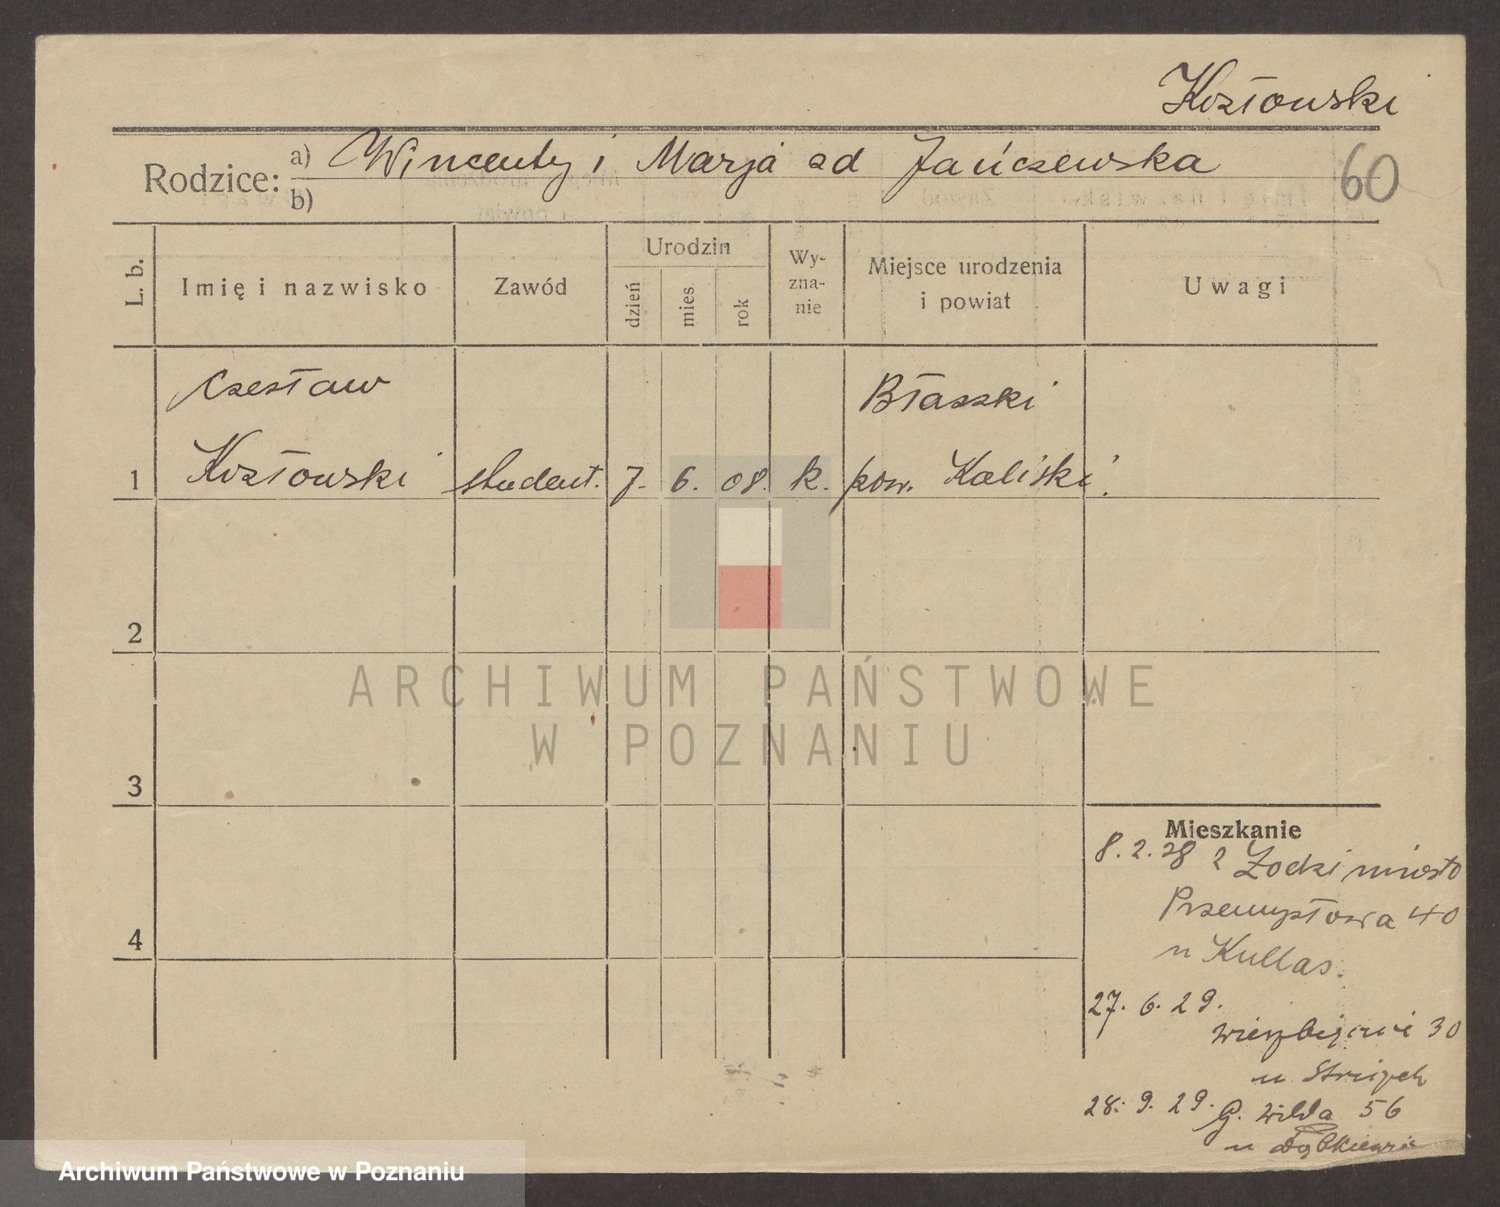 Kozłowski
Rodzice: a) Wincenty i Marja zd Jańczewska
b)
60
L. b.
Imię i nazwisko
Zawód
Urodzin
dzień
mies.
rok
Wy-
zna-
nie
Miejsce urodzenia
i powiat
Uwagi
Czesław
Błaszki
1 Kozłowski student. 7. 6. 08. k. pow. Kaliski.
2
ARCHIWUM PAŃSTWOWE
W POZNANIU
3
Mieszkanie
8. 2. 28 z Łodzi miasto
Przemysłowa 40
4
u Kullas.
27. 6. 29.
Wierzbięcice 30
u
28. 9. 29. G. Wilda 56
u
Archiwum Państwowe w Poznaniu